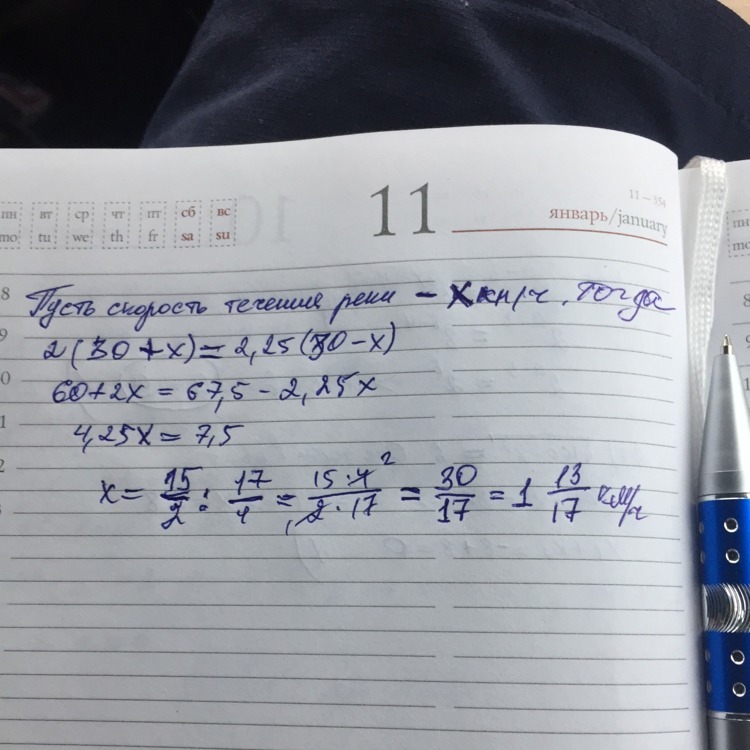 11 – 354
11
январь/january
пн вт ср чт пт сб вс
mo tu we th fr sa su
8
Пусть скорость течения реки – х км/ч, тогда
9
2(30+x)=2,25(30-x)
0
60+2x = 67,5-2,25x
1
4,25x=7,5
2
x= 15/2 : 17/4 = 15·4 2/2·17 = 30/17 = 1 13/17 км/ч